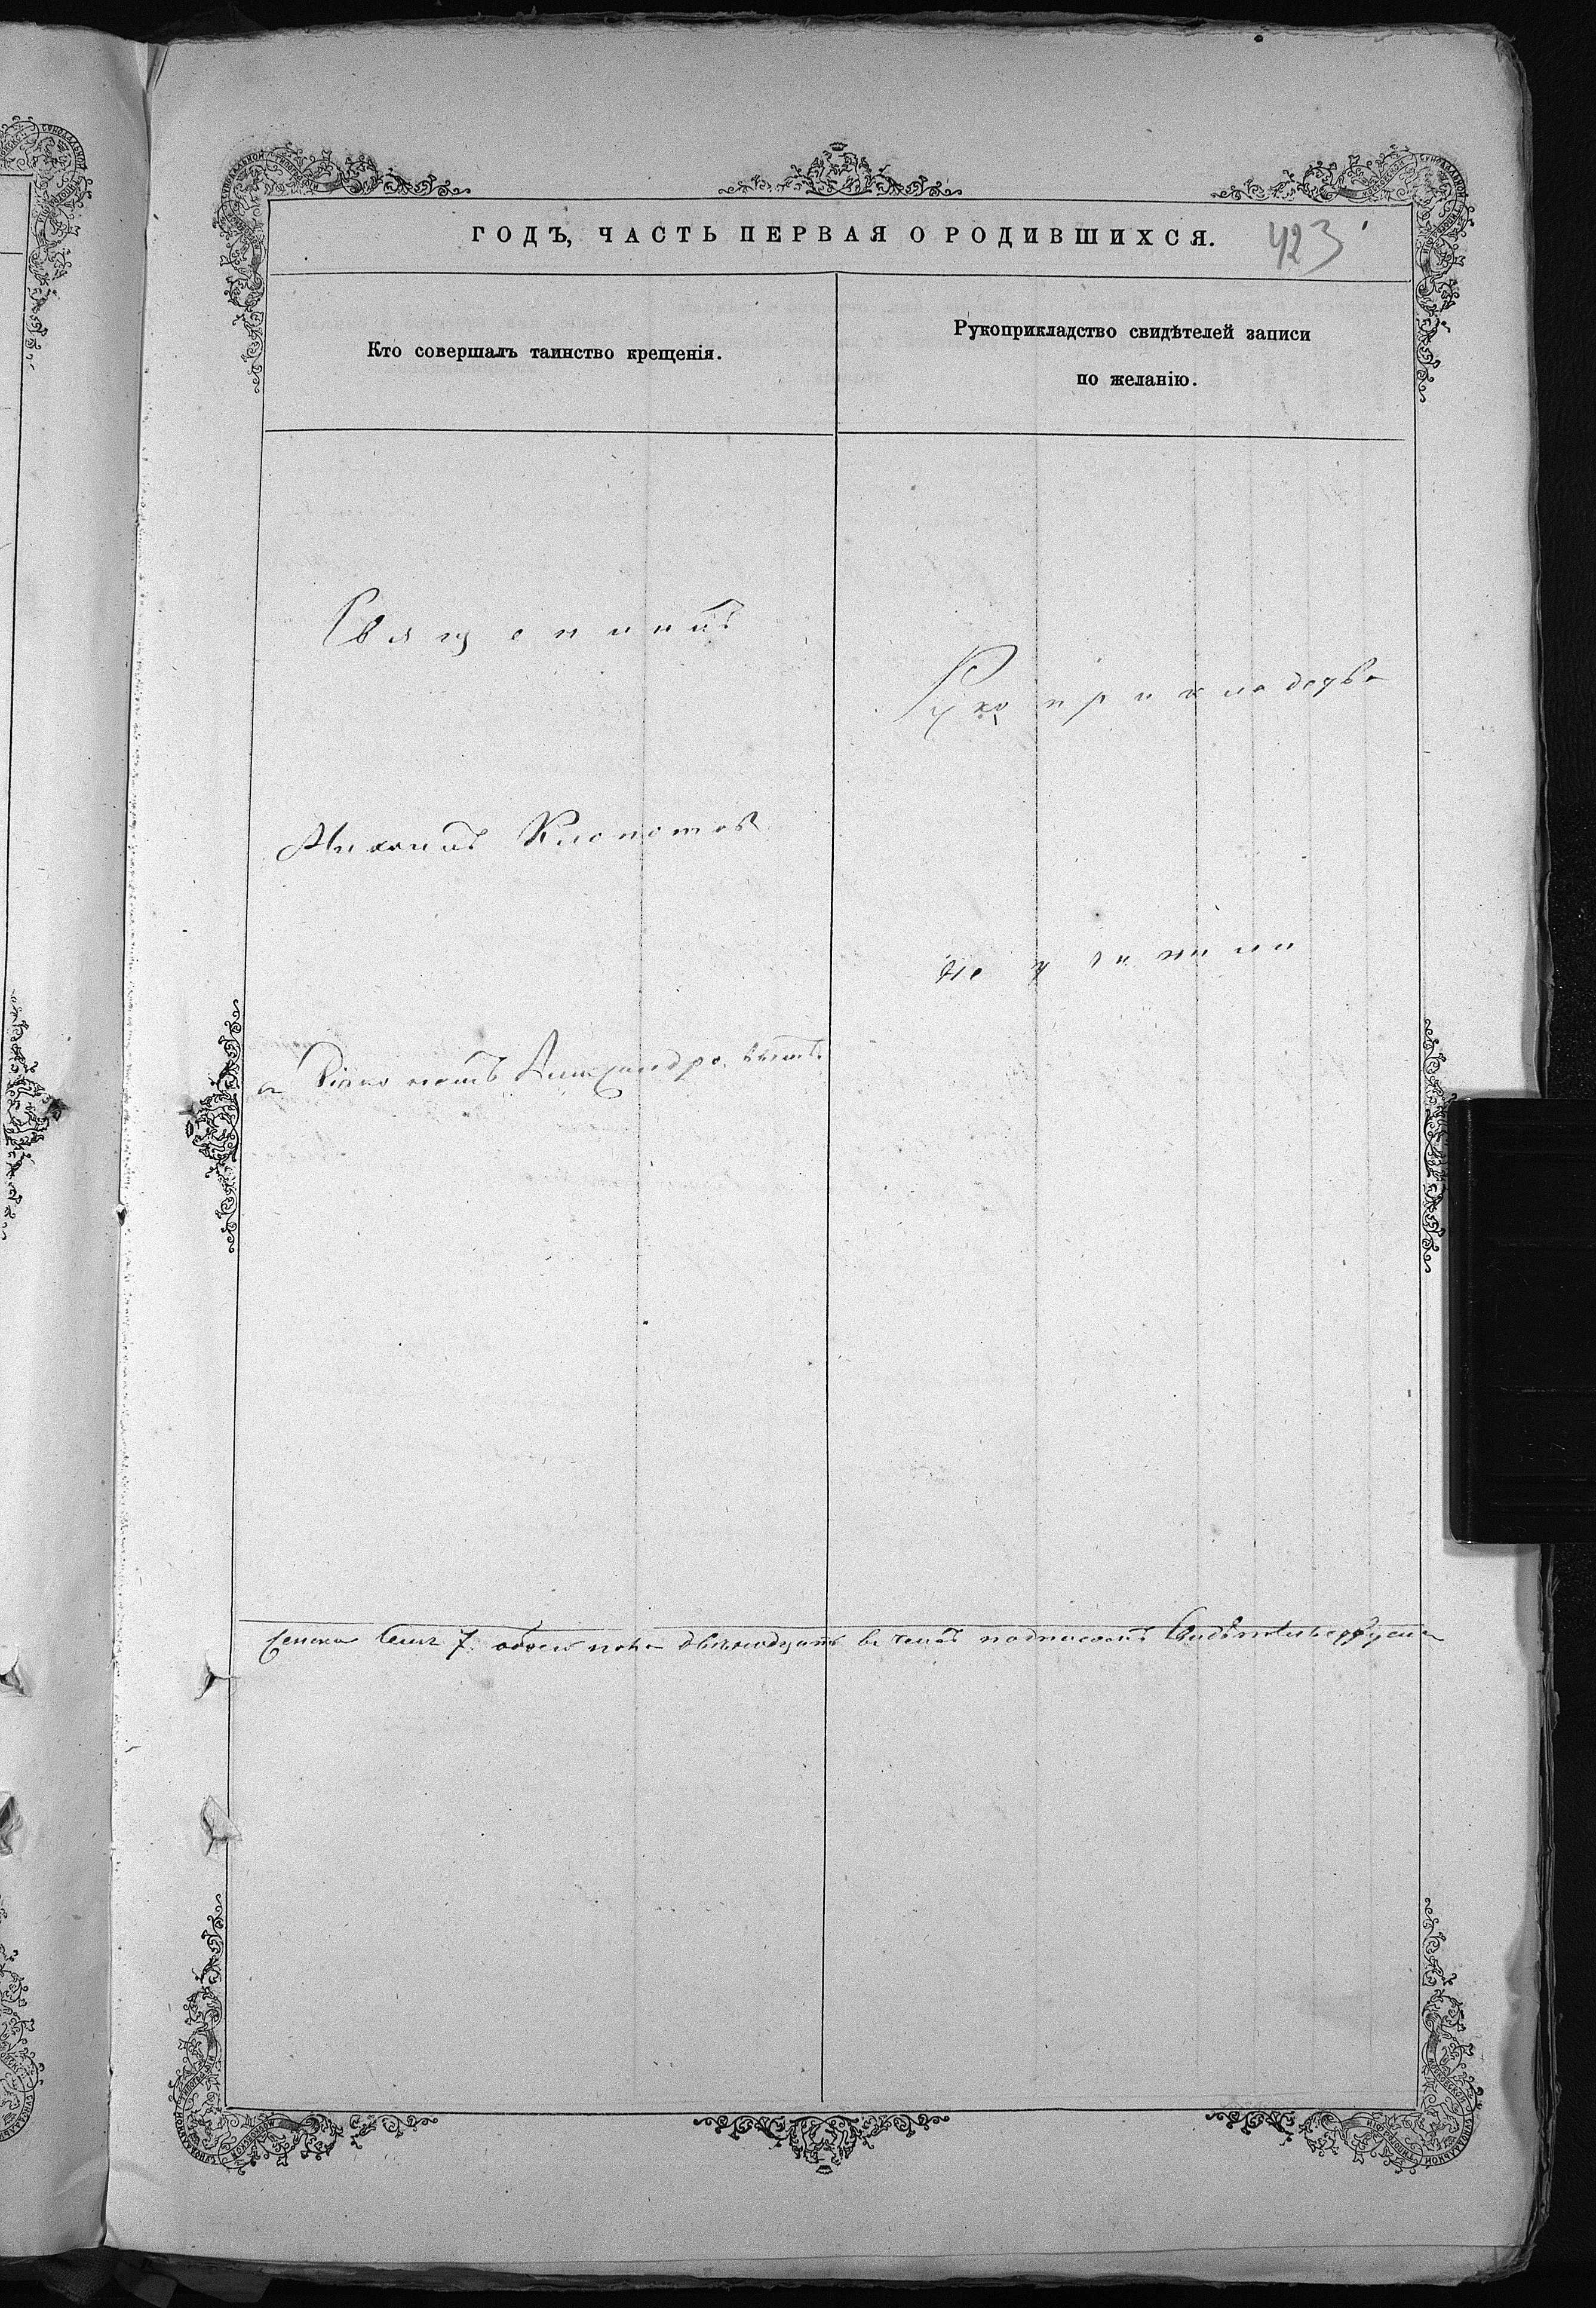 ГОДЪ, ЧАСТЬ ПЕРВАЯ О РОДИВШИХСЯ.
423
Кто совершалъ таинство крещенія.
Рукоприкладство свидѣтелей записи
по желанію.
Священникъ
Рукоприкладства
Михаилъ Клопотовъ
не учинили
съ Діакономъ Александровымъ
женска 7. обоего пола двенадцать въ чемъ подписомъ